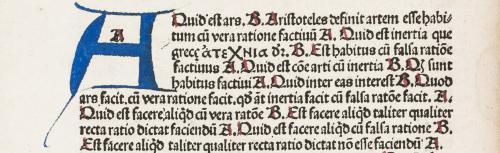 A Quid est ars. B. Aristoteles definit artem esse habi-
tum cū vera ratione factiuū A. Quid est inertia que
grece ἀτεχνια dr̄. B. Est habitus cū falsa ratiōe
factiuus A. Quid est cōe arti cū inertia B. Qz sunt
habitus factiui A. Quid inter eas interest B. Quod
ars facit. cū vera ratione facit. qd̄ āt inertia facit cū falsa ratōe facit. A.
Quid est facere aliqd̄ cū vera ratōe B. Est facere aliqd̄ taliter qualiter
recta ratio dictat faciendū A. Quid est facere aliqd̄ cū falsa ratione B.
Est facere aliqd̄ taliter qualiter recta ratio dictat nō esse faciendū A.